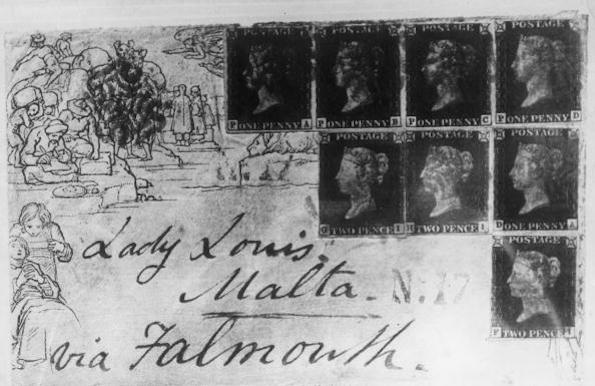 POSTAGE POSTAGE POSTAGE POSTAGE
P ONE PENNY A P ONE PENNY B P ONE PENNY C P ONE PENNY D
POSTAGE POSTAGE POSTAGE
G TWO PENCE I H TWO PENCE I D ONE PENNY A
POSTAGE
F TWO PENCE I
Lady Louis.
Malta.
via Falmouth.